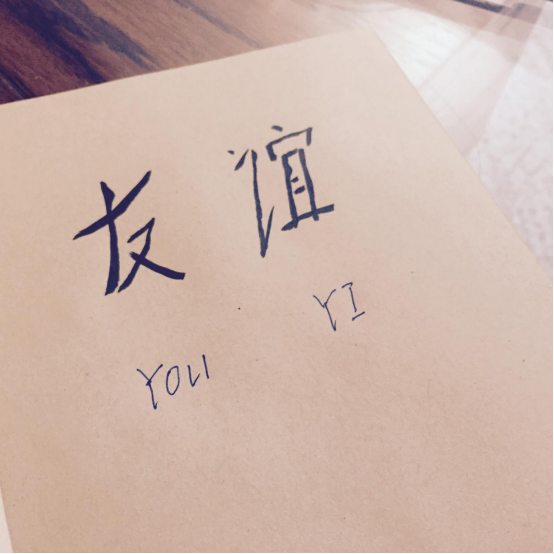 友谊
YOU YI